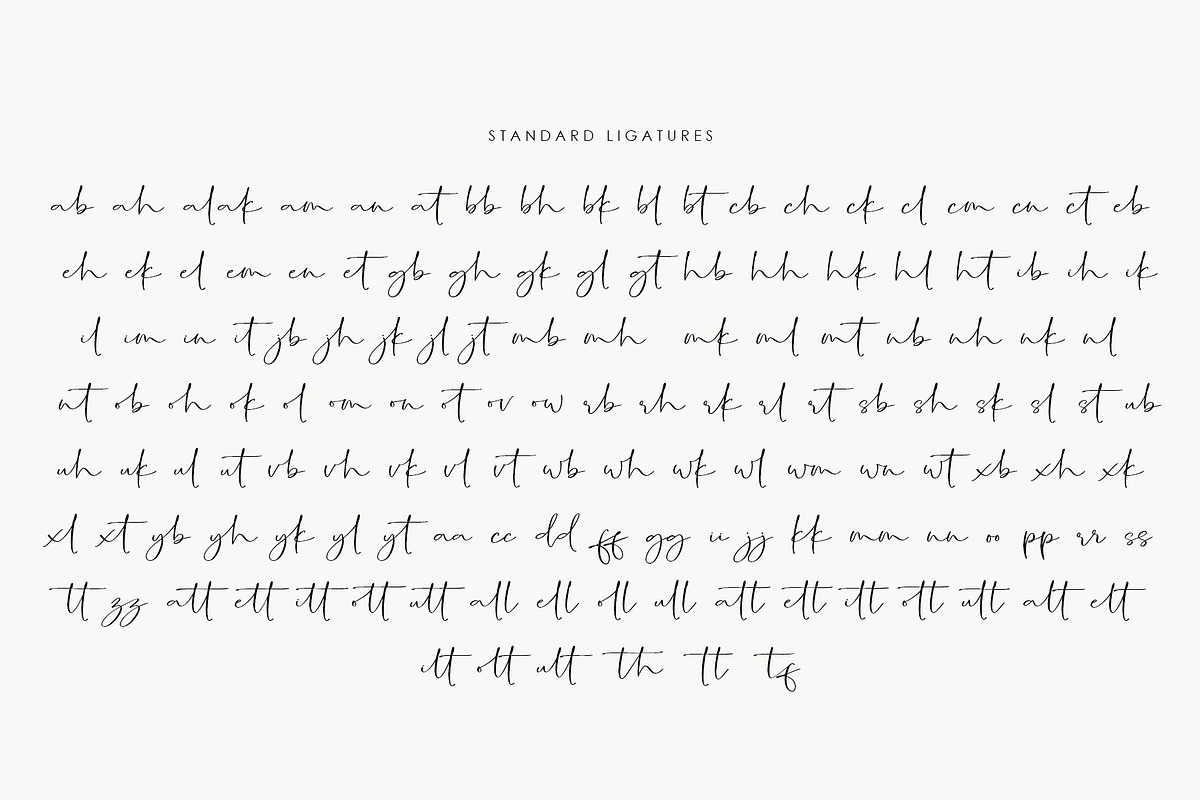 STANDARD LIGATURES
ab ah alak am an at bb bh bk bl bt cb ch ck cl cm cn ct eb
eh ek el em en et gb gh gk gl gt hb hh hk hl ht ib ih ik
il im in it jb jh jk jl jt mb mh mk ml mt nb nh nk nl
nt ob oh ok ol om on ot ov ow rb rh rk rl rt sb sh sk sl st ub
uh uk ul ut vb vh vk vl vt wb wh wk wl wm wn wt xb xh xk
xl xt yb yh yk yl yt aa cc dd ff gg ii jj kk mm nn oo pp rr ss
tt zz att ett itt ott utt all ell oll ull atl etl itl otl utl alt elt
ilt olt ult th tl tf